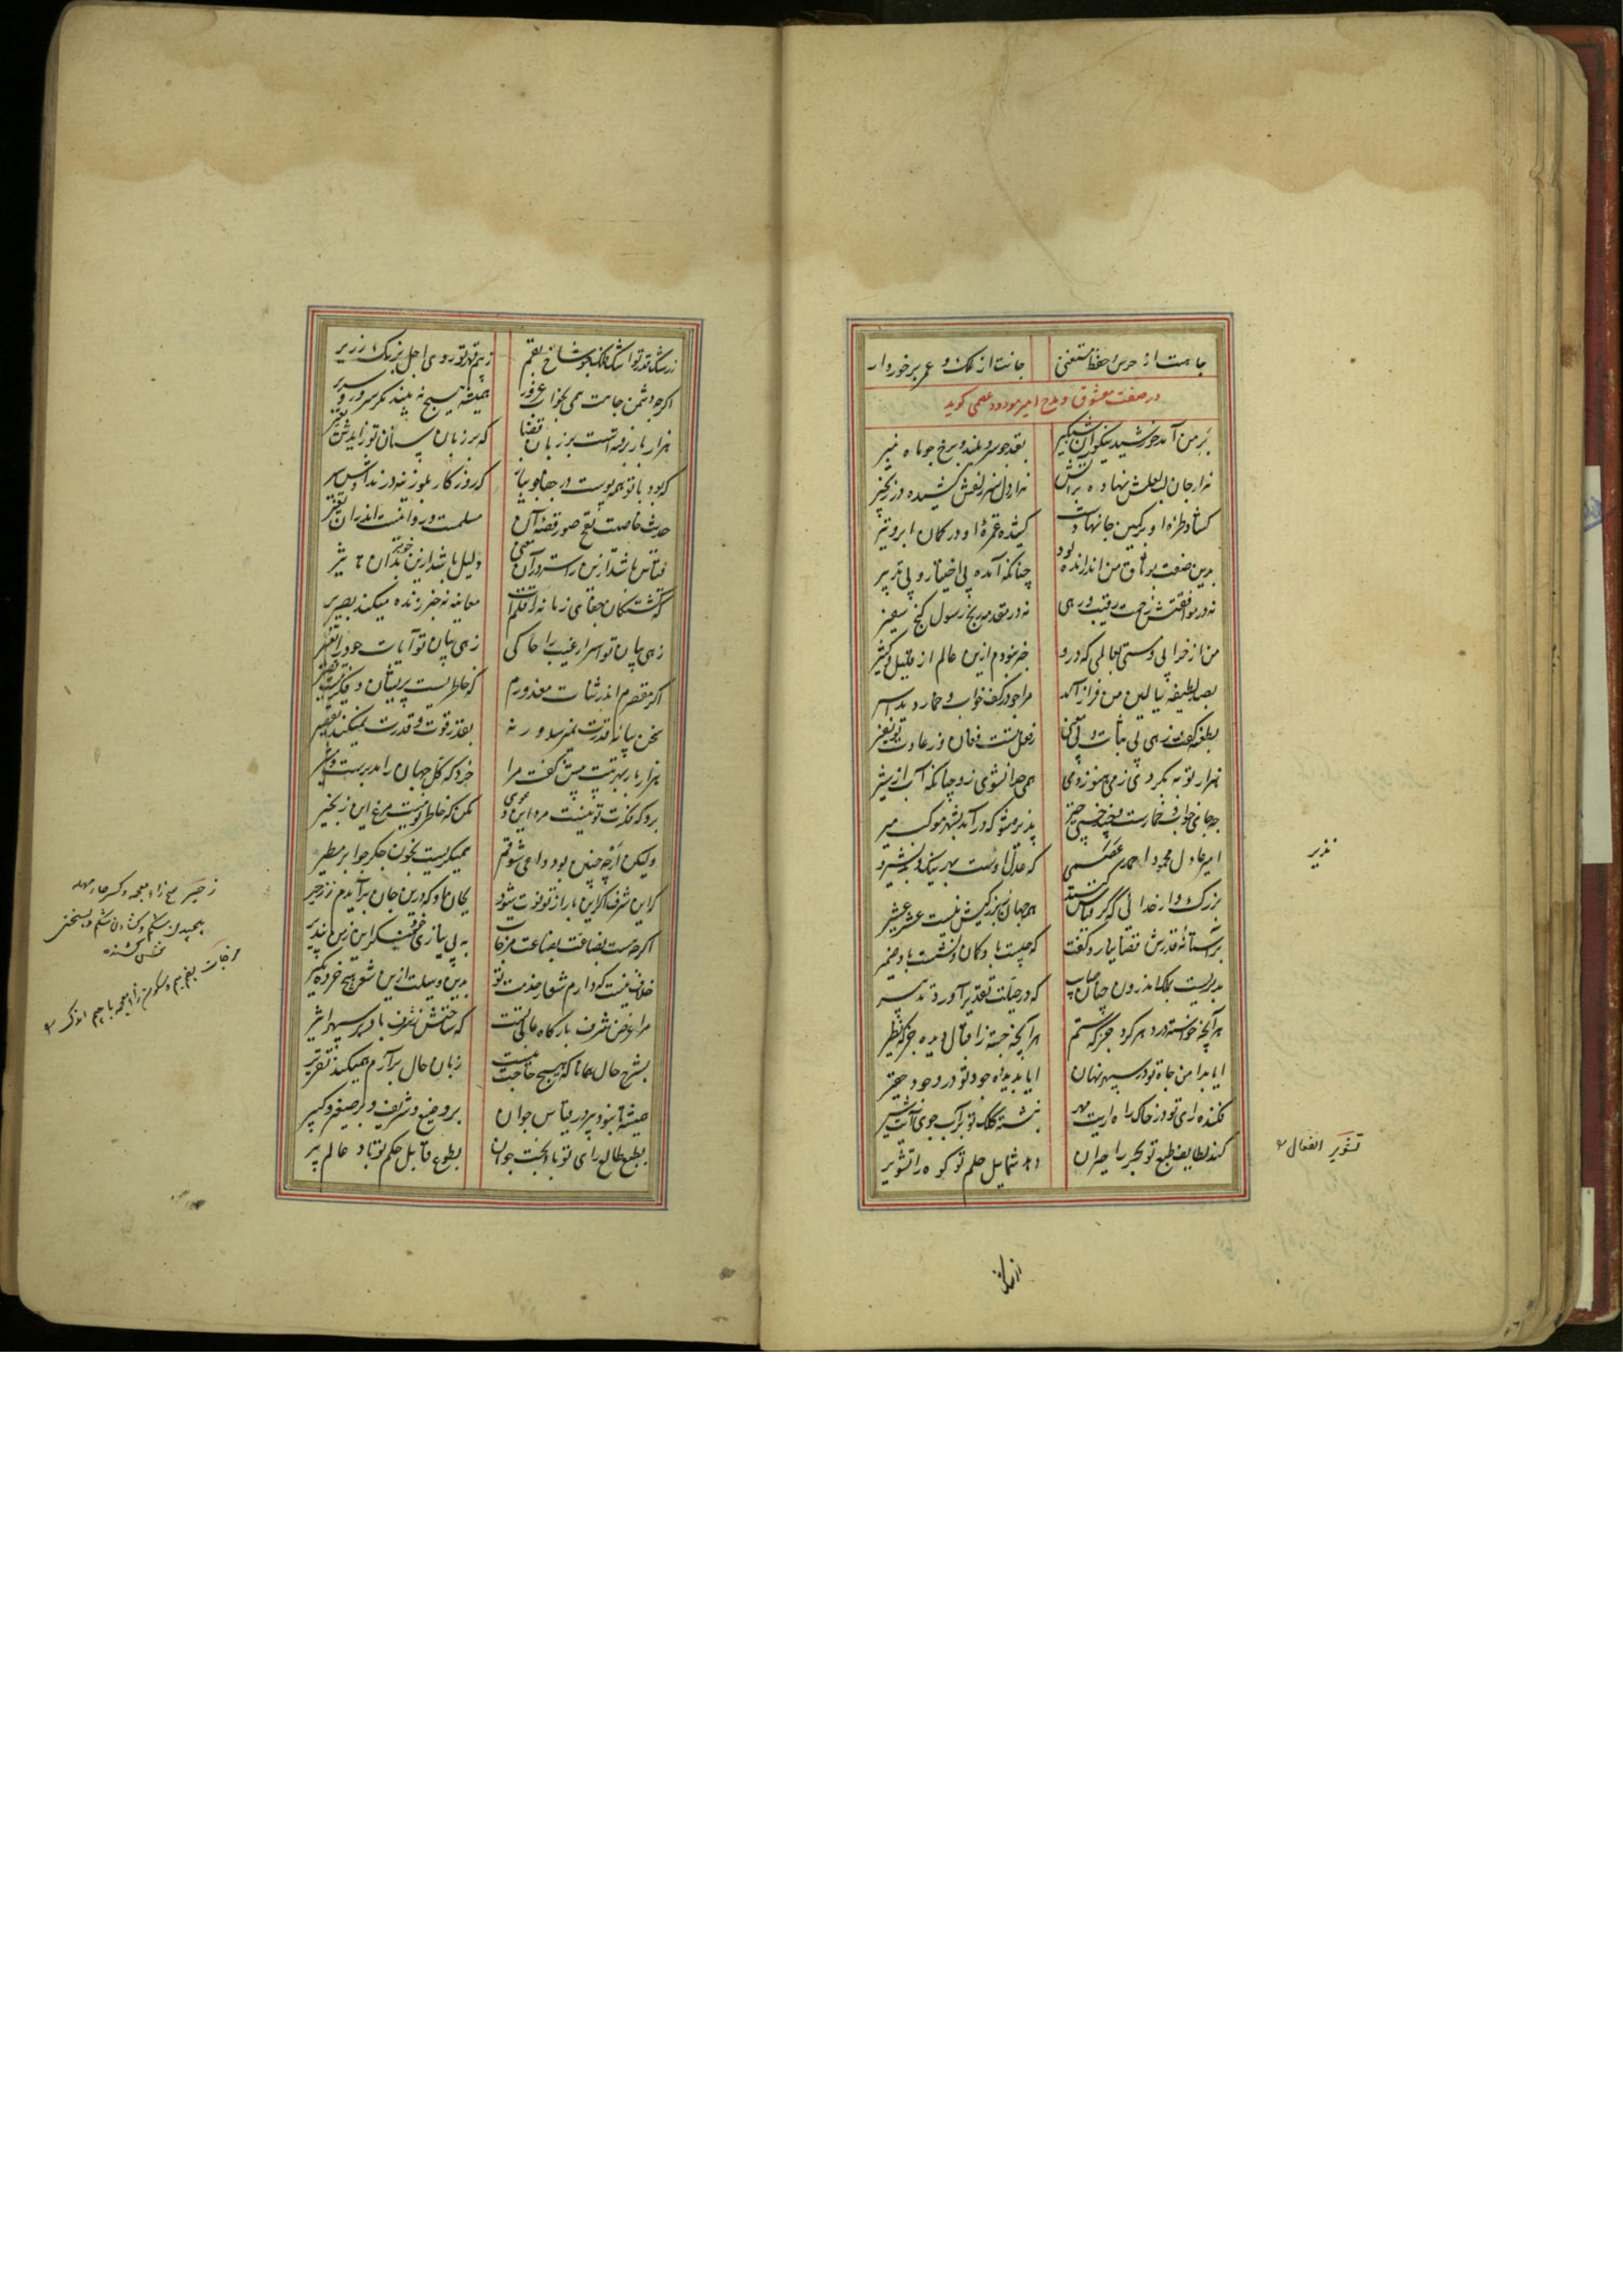 جاهت از حرس و حفظ مستغنی جانت از ملک و عمر برخوردار
در صفت معشوق و مدح امیر مودود عصمی گوید
بر من آمد خورشید نیکوان شبگیر بقد چو سرو بلند و برخ چو ماه منیر
هزار جان لب لعلش نهاده بر آتش هزار دل سر زلفش کشیده در زنجیر
گشاده طره او بر کمین جانها دست کشیده غمزه او در کمان ابرو تیر
بدین صفت بوثاق من اندر آمده بود چنانکه آمده بی اختیار و بی تدبیر
نه در موافقتش زحمت رقیب و رهی نه در مقدمه رنج رسول کنج سفیر
من از خرابی و مستی بعالمی که درو خبر نبودم ازین عالم از قلیل و کثیر
بصد لطیفه ببالین من فراز آمد مرا چو در کف خواب و خمار دید اسیر
بطعنه گفت زهی بی ثبات بی معنی ز فعل تست فغان وز عادت تو نفیر
هزار توبه بکردی ز می هنوز دمی همی جدا نشوی زو چنانکه آب از شیر
چه جای خواب و خمارست خیز خیز پذیره شو که در آمد بشهر موکب میر
امیر عادل محمود احمد عصمی که عدل اوست بهر نیک و بد بشیر و
نذیر
بزرگ بار خدائی که گر قیاس کنند همه جهان ز بزرگیش نیست عشر عشیر
بر آستانه قدرش قضا نیارد گفت که چیست باد و کمان و نشست باد ضمیر
بدولتیست ملک اندرون چنان صایب که در حیلت تقدیر آورد تدبیر
هر آنچه خواسته در دهر کرد جز که ستم هر آنچه جسته ز اقبال دیده جز که نظیر
ایا بدامن جاه تو در سپهر نهان ایا بدیده جود تو در وجود حقیر
فکنده رای تو در خاک راه رایت مهر نبشته کلک تو بر آب جوی آیت شیر
کند لطایف طبع تو بحر را حیران دهد شمایل حلم تو کوه را تشویر
تشویر انفعال
ز رشک قدر تو اشک فلک چو شاخ بقم ز بیم قهر تو روی اجل برنگ زریر
اگرچه دشمن جاهت همی بخواب غرور همیشه هیچ نه بیند مگر سرور و سریر
هزار بار ز رفته است بر زبان قضا که بر زبان سنان تو زایدش تعبیر
که بود با تو همه پوست در جهان چو پیاز که روزگار بلوزینه در نداشتش سیر
حدیث خاصیت نفخ صور قصه آن مسلمست و روا نیست اندر آن تغییر
قیاس باشد ازین راست تر در آن معنی دلیل باشد ازین خوبتر بدان تاثیر
که کشتگان جفای زمانه را قلمت معاینه نه خبر زنده میکند بصریر
زهی بیان تو اسرار غیب را حاکی زهی بنان تو آیات جود را تفسیر
اگر مقصرم اندر ثنات معذورم که خاطریست پریشان و فکرتیست قصیر
سخن بپایه قدرت نمیرسد ور نه بقدر قوت و قدرت نمیکند تقصیر
هزار بار بهر بیت بیش گفت مرا خرد که کل جهان را مدبر است و مشیر
برو که فکرت تو نیست مرد این دعوی مکن که خاطر تو نیست مرغ این زنجیر
ولیکن ارچه چنین بود داعی شوقم همیگریست بخون جگر چو ابر مطیر
کزین شرف اگر این بار از تو فوت شود بجان او که درین جان برآیدم ز زحیر
اگرچه هست بضاعت بضاعت مزجات به بی نیازی خویشت که این ز من بپذیر
خلاف نیست که دارم شعار خدمت تو بدین وسیلت ازین شعر هیچ خرده مگیر
مرا غرض شرف بارگاه عالی تست که ساختنش ز شرف باد بر سپهر اثیر
بشرح حال همانا که هیچ حاجت نیست زبان حال به آرم همیکند تقریر
همیشه تا نبود پیر در قیاس جوان بر وضیع و شریف و بر صغیر و کبیر
بطبع طالع رای تو باد بخت جوان بطوع قابل حکم تو باد عالم پیر
زحیر بفتح زاء معجمه و کسر حاء مهمله
پیچیدن شکم و کشادن شکم و بسختی
نفس کشنده